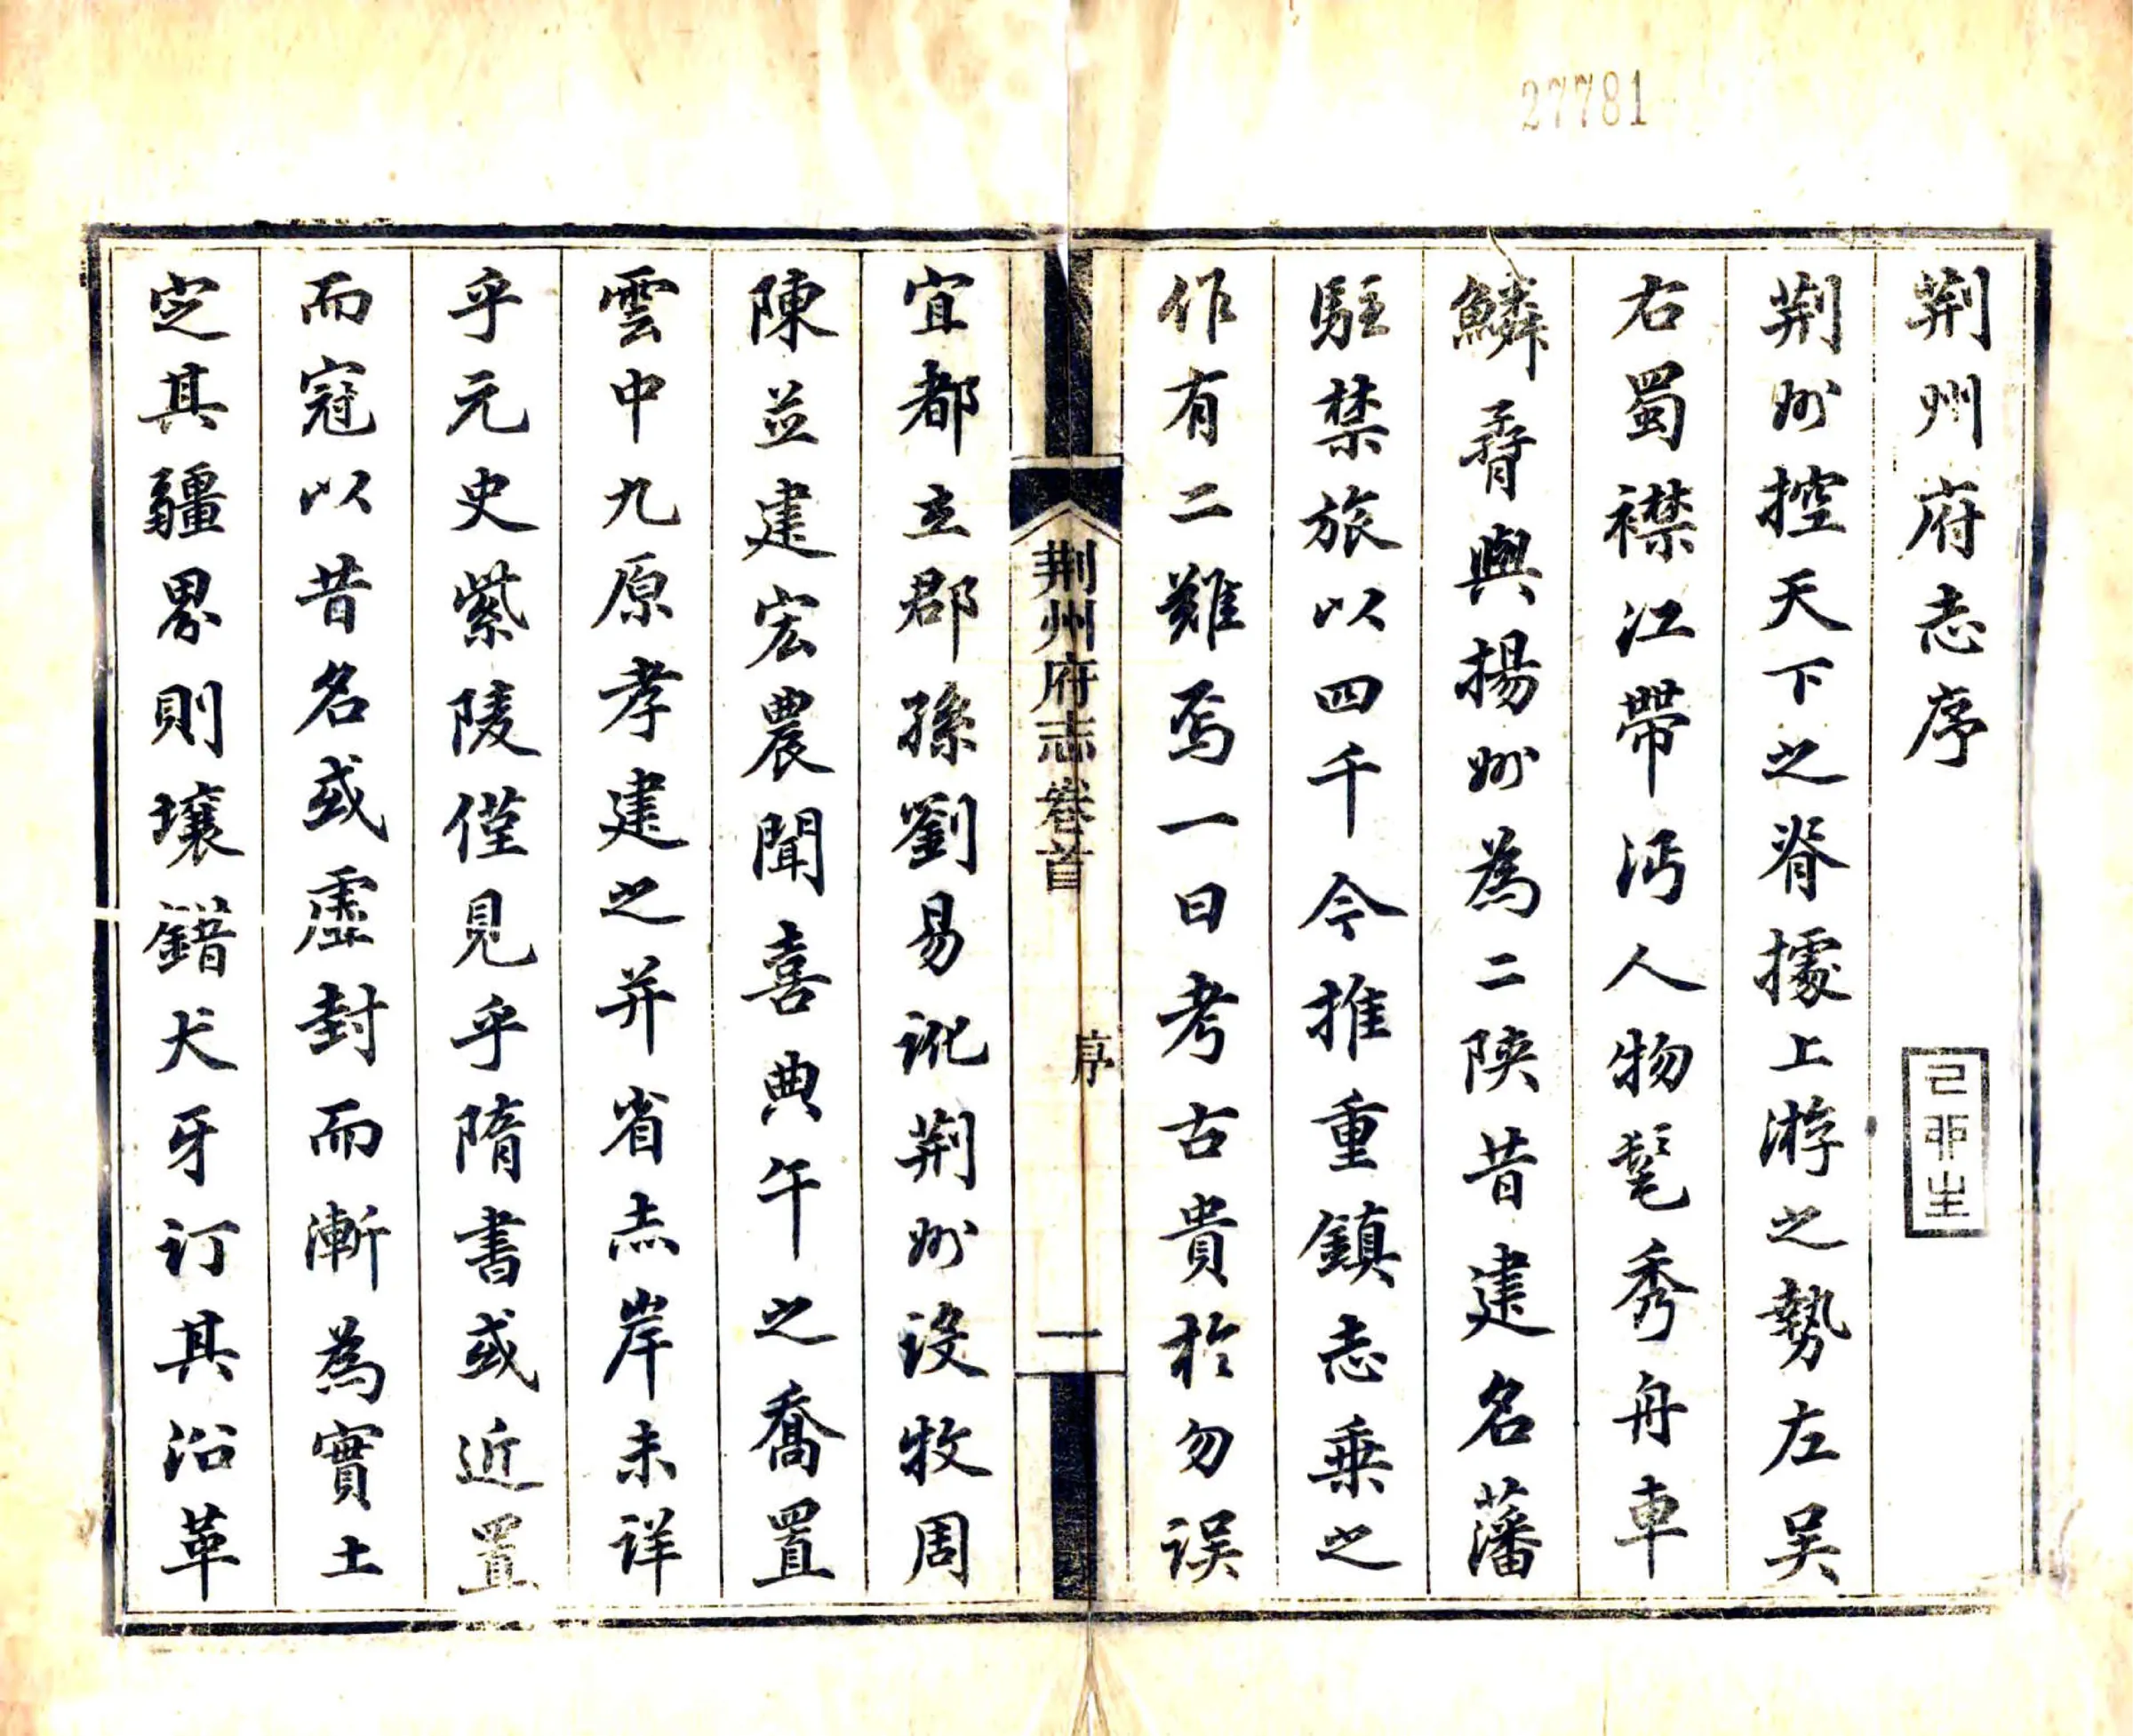 27781
荆州府志序
荆州控天下之脊據上游之勢左吴
右蜀襟江帶沔人物髦秀舟車
鱗脊與揚州為二陝昔建名藩
駐禁旅以四千今推重鎮志乗之
作有二難焉一曰考古貴於勿误
荆州府志卷首
序
一
宜都立郡孫劉易訛荆州设牧周
陳並建宏農聞喜典午之喬置
雲中九原孝建之并省志岸未详
乎元史紫陵僅見乎隋書或近置
而冦以昔名或虚封而漸為實土
定其疆界則壤錯犬牙订其沿革